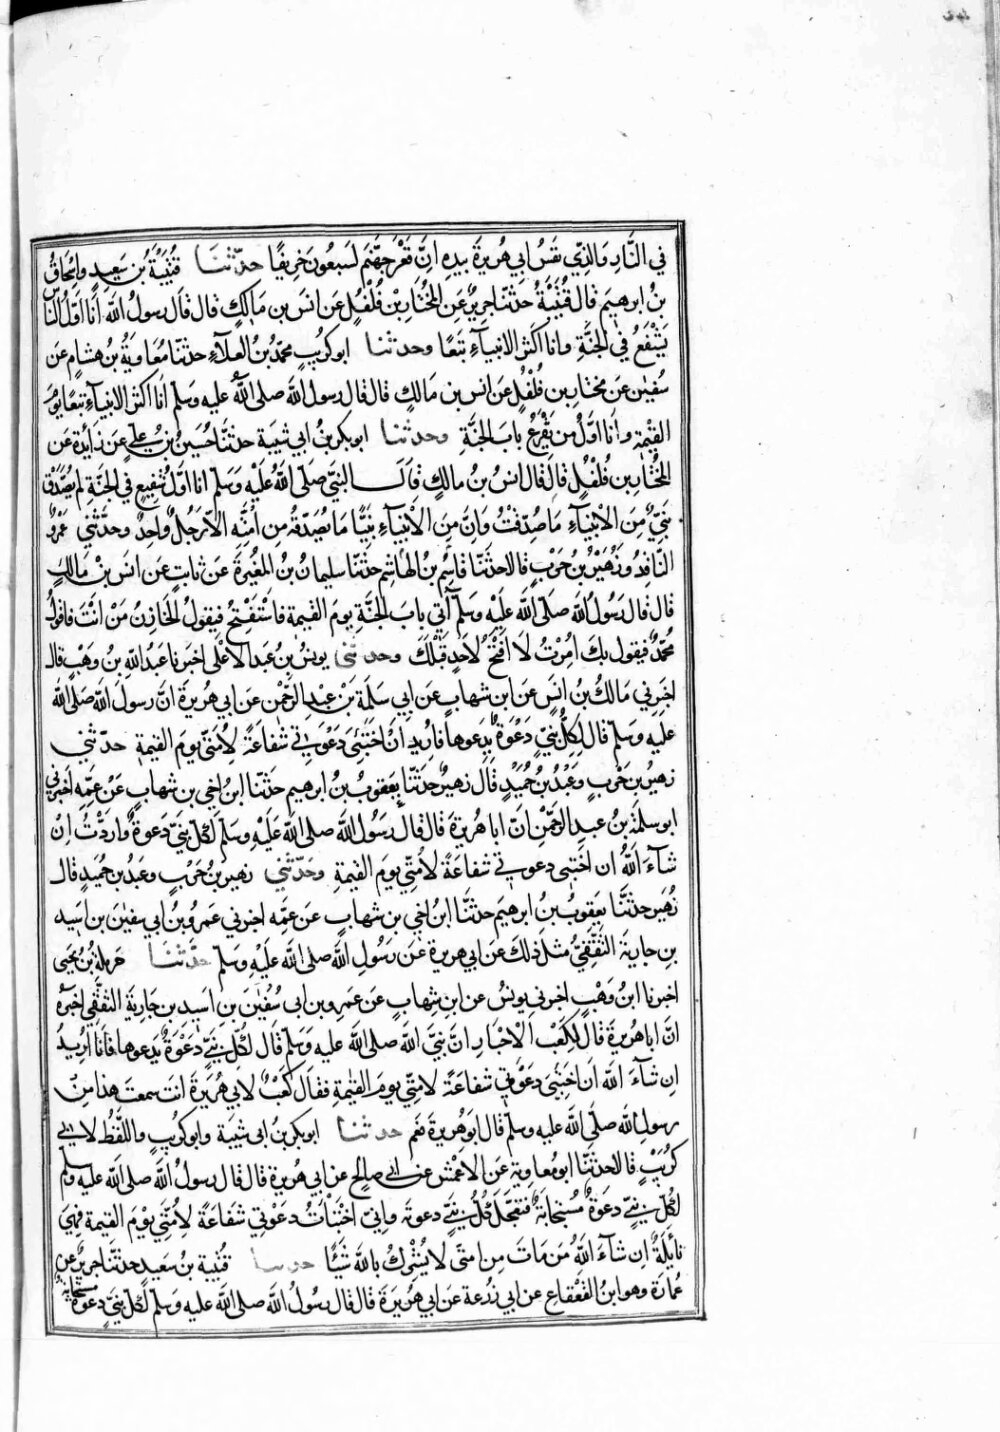 في النَّارِ وَالذِّي نَفسُ ابي هُرَيرَةَ بيدِهِ انَّ قَعْرَ جَهَّنَمَ لَسَبعُونَ خَرِيفًا حدّثنا قُتَيْبَةُ بنُ سَعِيدٍ وَاِسحَاقُ
بنُ ابرهيم قال قُتَيبَةُ حَدثَنَا جريرٌ عَنِ المُختَارِ بْنِ فُلْفُلٍ عَن انسَ بنِ مَالِكٍ قال قَال رسولُ الله انَا اوَّلُ النَّاسِ
يَشْفَعُ في الجَنَّةِ وانا اكثَر الانبيآءِ تَبَعًا وحدثنا ابوكريبٍ محمدُ بنُ العلآءِ حدثنا مُعَاوِيَةُ بنُ هِشامٍ عَن
سُفيٰن عَن مختارِ بن فُلْفُلٍ عَن انس بن مَالكٍ قال قال رسول الله صلى اللهُ عليه وسلم انَا اكثرُ الانبيآءِ تبعًا يومَ
القيٰمةِ وانَا اوّلُ من يَقْرَعُ بابَ الجنَّةِ وحدثنا ابوبكر بنُ ابي شَيبَة حدثنا حُسَينُ بنُ عليٍّ عَن زَايدةَ عَن
المُختَارِ بن فُلْفُلٍ قال قال انسُ بنُ مالكٍ قَالَ النبيّ صَلّى اللهُ عَلَيْهِ وَسَلّم انا اوّلُ شَفِيعٍ في الجنّةِ لم يُصَدَّقْ
نبيٌّ مِنَ الأنبيآءِ مَا صُدِّقتُ وَاِنَّ مِنَ الأنبيآءِ نبيًّا مَا يُصَدّقهُ من امّتِه الاّ رَجُلٌ واحِدٌ وحَدَّثَني عَمْرٌو
النّاقِدُ وَزُهَيْرُ بنُ حَربٍ قالا حدثَنَا هَاشِمُ بنُ القَاسِمِ حَدثَنا سليمانُ بنُ المُغيرةِ عَن ثابتٍ عن انس بْنِ مَالِكٍ
قال قال رَسُولُ الله صَلى الله عَلَيْهِ وَسَلم آتي بابَ الجَنّةِ يومَ القيمةِ فاسْتَفْتِحُ فيقولُ الخَازِنُ مَنْ انْتَ فاقولُ
محمّدٌ فيقول بكَ اُمِرْتُ لا افْتَحُ لأحَدٍ قَبْلَكَ وحدثني يونسُ بنُ عبدِ الأعْلى اخبرنا عَبدُ اللهِ بنُ وَهْبٍ قال
اخبَرني مَالكُ بنُ انَسٍ عَن ابن شهابٍ عَن ابي سَلَمَةَ بْنِ عَبْدِ الرّحْمنِ عَن ابي هُريرةَ انَّ رسولَ الله صَلّى اللهُ
عليه وَسَلم قالَ لِكُلِّ نبيٍّ دَعْوَةٌ يَدعوها فاُريدُ انْ اَختَبِئَ دَعْوَتي شَفاعَةً لأمّتي يومَ القيمةِ حدّثني
زهيرُ بن حَربٍ وَعَبْدُ بنُ حُمَيدٍ قَال زهيرٌ حَدثنَا يَعقوبُ بنُ ابرهيم حَدثنا ابنُ اخي بن شِهابٍ عَنْ عَمِّهِ اخبرني
ابو سلمَةَ بنُ عبدِ الرحمٰنِ انَّ ابا هُرَيرةَ قال قالَ رَسُولُ الله صلى الله عَلَيْهِ وسَلم لكُلّ نبيٍّ دَعوةٌ واردتُ اِنْ
شآءَ اللهُ ان اختبئَ دعوتي شفاعَةً لأمّتِي يومَ القيمةِ وحَدّثني زهيرُ بنُ حَربٍ وعَبدُ بن حُمَيدٍ قال
زُهَير حَدثَنَا يعقوبُ بنُ ابرهيم حَدثنا ابنُ اخي بن شهابٍ عَن عَمِّه اخبرني عَمرُو بنُ ابي سفيٰن بن اَسِيد
بن جاريةَ الثَّقَفِيُّ مثلَ ذلكَ عَن ابي هريرةَ عَن رَسُولِ اللهِ صلى اللهُ عَلَيهِ وسَلم حدَّثَنَا حَرملةُ بنُ يحيى
اخبرنا ابنُ وَهْبٍ اخبرني يونسُ عن ابنِ شهابٍ عَن عَمرِو بن ابى سُفيٰنَ بن اَسِيد بن جَاريَةَ الثقَفِي اخبَره
انَّ ابا هُريرةَ قَال لِكعْبِ الأحْبَارِ انَّ نبيَّ الله صلى الله عليه وسَلم قَال لكُلِّ نبيٍّ دَعْوَةٌ يَدعوها فانَا اُريدُ
ان شآءَ الله ان اختَبئَ دعوَتي شفاعَةً لامّتِي يومَ القيمةِ فقال كَعْبٌ لابي هُرَيرَةَ انتَ سمعتَ هذا مِن
رسولِ اللهِ صلى الله عليه وسلم قال ابو هُرَيرَةَ نَعَم حدثنا ابوبكر بنُ ابى شَيبَة وابوكريبٍ واللَّفظُ لابي
كُرَيبٍ قَالا حدثنا ابو معاوِيَة عَنِ الاعْمشِ عن ابي صالحٍ عن ابي هريرةَ قال قال رسولُ الله صلى الله عليه وسلم
لِكُلّ نبيٍّ دعوَةٌ مُستجَابَةٌ فتعَجَّلَ كُلُّ نبيٍّ دعوتَه وانّي اختَبَأتُ دعوَتي شفاعَةً لأمَّتي يوْمَ القيمة فهِيَ
نايلَةٌ ان شآءَ اللهُ مَن مَاتَ مِن امتى لا يُشْركُ بالله شَيئًا حدثنا قُتيبة بن سَعيدٍ حدثنا جريرٌ عن
عُمَارَةَ وهو ابنُ القَعْقاعِ عن ابي زُرعة عَن ابي هُرَيرَةَ قال قال رسُولُ الله صلى الله عليه وسَلم لكُلِّ نبيٍّ دعوَةٌ مستجابةٌ